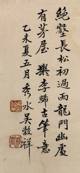 絕壑長松初過雨龍門幽處
有茅屋擬李晞古筆意
乙未夏五月秀水吳穀祥